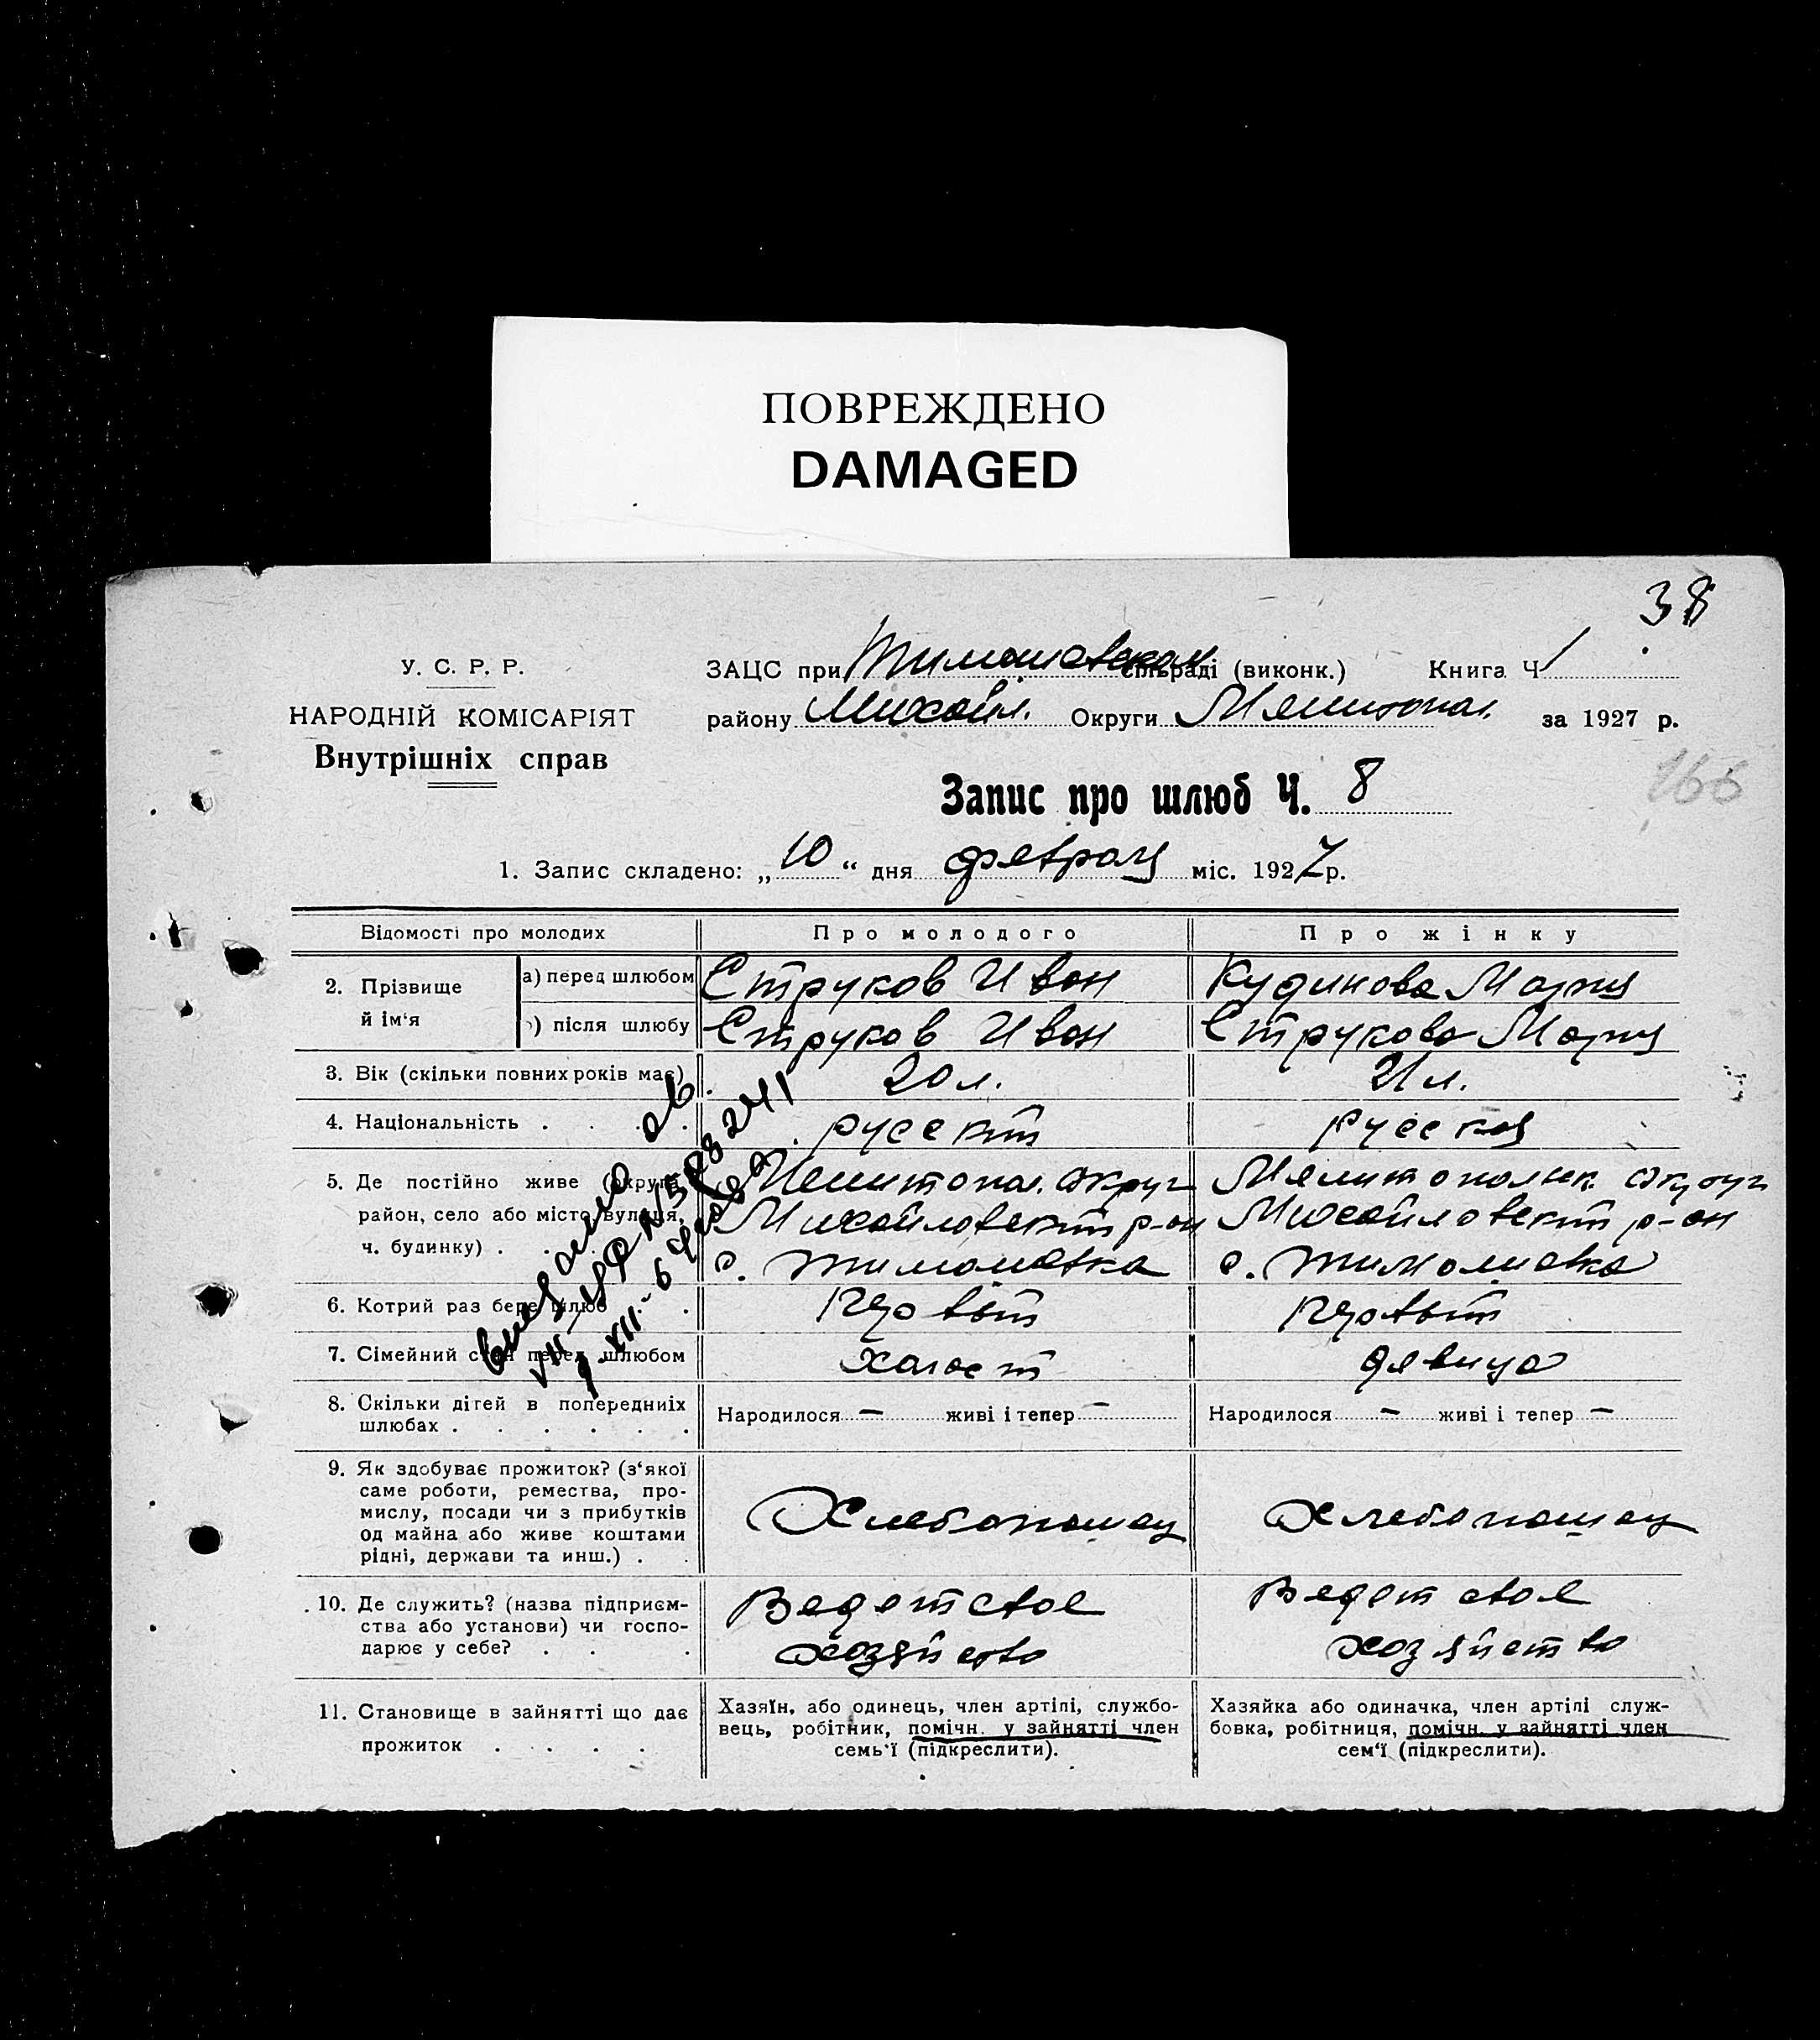 ПОВРЕЖДЕНО
DAMAGED
38
У. С. Р. Р.
НАРОДНІЙ КОМІСАРІЯТ
Внутрішніх справ
ЗАЦС при Тимошевском сільраді (виконк.) Книга Ч 1
району Михайл. Округи Мелитопол. за 1927 р.
166
Запис про шлюб Ч. 8
1. Запис складено: „10“ дня февраля міс. 1927 р.
Відомості про молодих
Про молодого
Про жінку
2. Прізвище й ім‘я
а) перед шлюбом Струков Иван Кудинова Мария
) після шлюбу Струков Иван Струкова Мария
3. Вік (скільки повних років має) 20 л. 21 л.
4. Національність . . . . русский русская
5. Де постійно живе (округа, Мелитопол. округ Мелитопольск. округ
район, село або місто, вулиця, Михайловский р-он Михайловский р-он
ч. будинку) . . . . с. Тимошевка с. Тимошевка
6. Котрий раз бере шлюб . Первый Первый
7. Сімейний стан перед шлюбом Холост девица
8. Скільки дітей в попередниіх Народилося — живі і тепер — Народилося — живі і тепер —
шлюбах . . . . . .
9. Як здобуває прожиток? (з‘якої
саме роботи, ремества, про-
мислу, посади чи з прибутків Хлебопашец Хлебопашец
од майна або живе коштами
рідні, держави та инш.) . .
10. Де служить? (назва підприєм- Ведет свое Ведет свое
ства або установи) чи госпо-
дарює у себе? . . . хозяйство хозяйство
11. Становище в зайнятті що дає
прожиток . . . .
Хазяїн, або одинець, член артілі, службо-
вець, робітник, помічн. у зайнятті член
семь‘ї (підкреслити).
Хазяйка або одиначка, член артілі служ-
бовка, робітниця, помічн. у зайнятті член
сем‘ї (підкреслити).